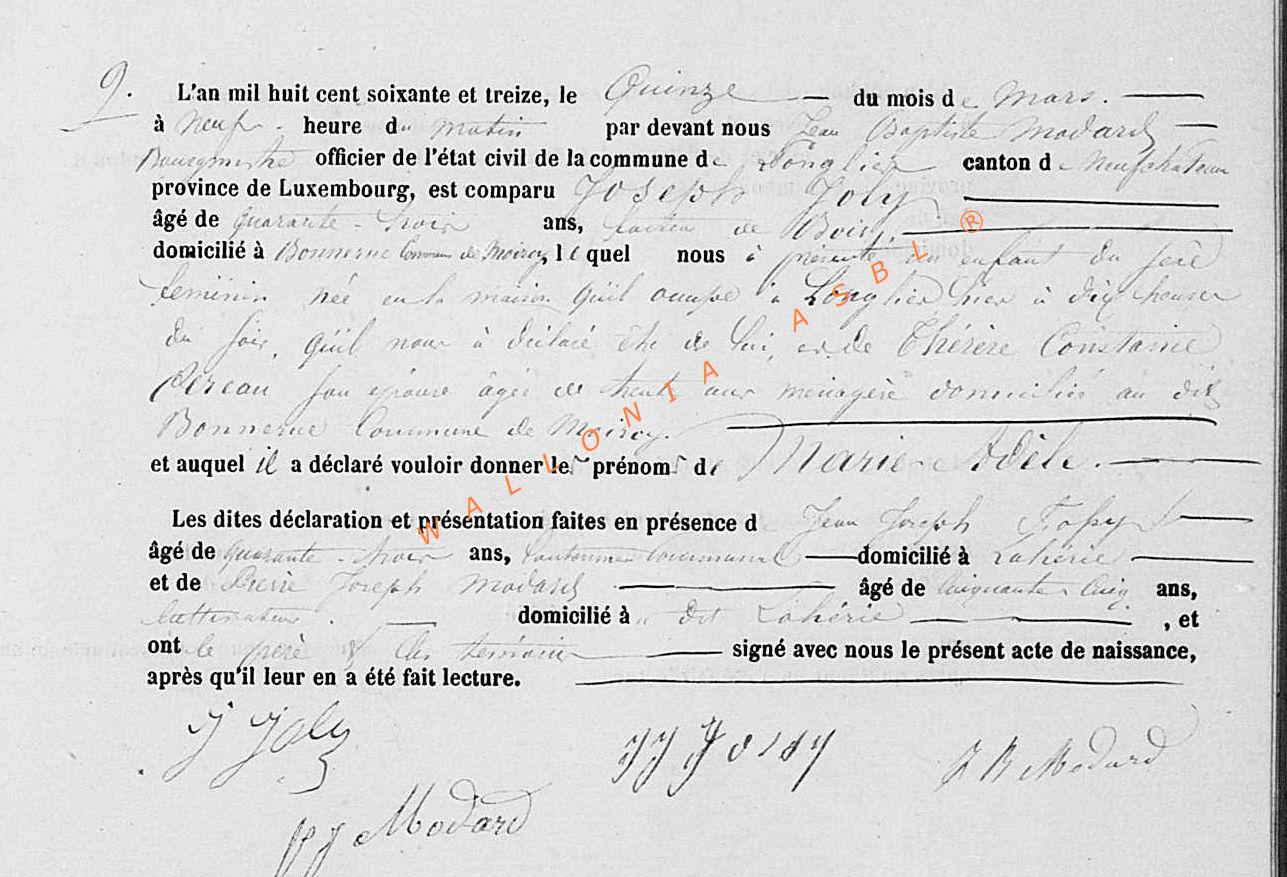 9.
L'an mil huit cent soixante et treize, le Quinze du mois de Mars.
à neuf heure du matin par devant nous Jean Baptiste Modard
Bourgmestre officier de l'état civil de la commune de Longlier canton de Neufchateau
province de Luxembourg, est comparu Joseph Joly
âgé de quarante-trois ans, facteur de Bois,
domicilié à Bonnerue Commune de Moircy, lequel nous à présenté un enfant du sexe
feminin née en la maison qu'il occupe à Longlier hier à dix heures
du soir, qu'il nous à déclaré être de lui, et de Thérèse Constance
son épouse âgée de trente ans ménagère domiciliée au dit
Bonnerue Commune de Moircy.
et auquel il a déclaré vouloir donner les prénoms de Marie Adèle.
Les dites déclaration et présentation faites en présence d Jean Joseph
âgé de quarante-trois ans, domicilié à Lahérie
et de Pierre Joseph Modard âgé de Cinquante Cinq ans,
cultivateur domicilié à dit Lahérie , et
ont le père & les témoins signé avec nous le présent acte de naissance,
après qu'il leur en a été fait lecture.
J Joly
J B Modard
PJ Modard
W A L L O N I A A S B L ®